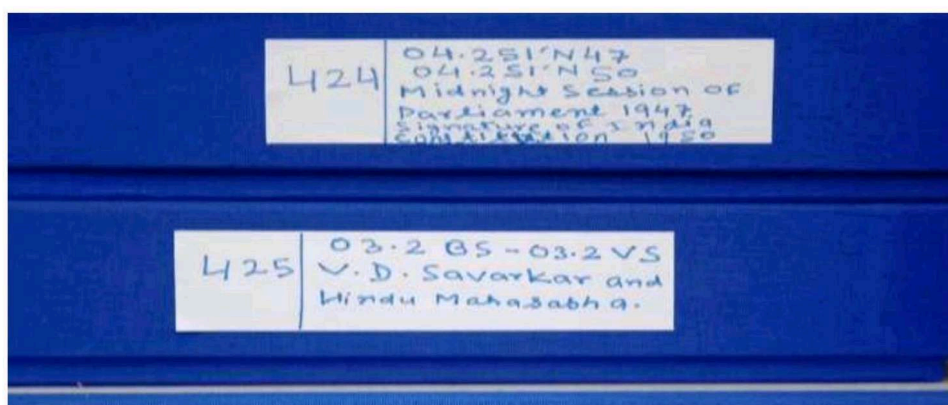 424
04.2SI'N47
04.2SI'N50
Midnight Session of
Parliament 1947
Signature of India
Constitution 1950
425
03.2 BS - 03.2 VS
V.D. Savarkar and
Hindu Mahasabha.